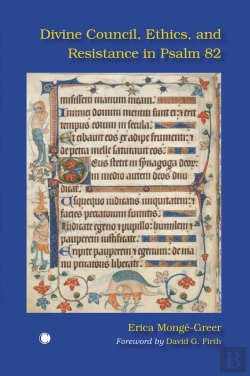 Divine Council, Ethics, and
Resistance in Psalm 82
misissem manum meam.
Inimici domini mentiti sunt ei: et erit
tempus eorum in secula.
Et cibauit eos ex adipe frumenti: et
de petra melle saturauit eos.
Deus stetit in synagoga deorum:
in medio autem deos diiu
dicat.
Usquequo iudicatis iniquitatem: et
facies peccatorum sumitis.
Iudicate egeno et pupillo: humilem et
pauperem iustificate.
Eripite pauperem et egenum: de ma
nu peccatoris liberate.
Erica Mongé-Greer
Foreword by David G. Firth
B